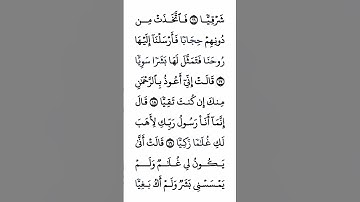 شَرْقِيًّا ۝١٦ فَٱتَّخَذَتْ مِن
دُونِهِمْ حِجَابًا فَأَرْسَلْنَآ إِلَيْهَا
رُوحَنَا فَتَمَثَّلَ لَهَا بَشَرًا سَوِيًّا
۝١٧ قَالَتْ إِنِّىٓ أَعُوذُ بِٱلرَّحْمَٰنِ
مِنكَ إِن كُنتَ تَقِيًّا ۝١٨ قَالَ
إِنَّمَآ أَنَا۠ رَسُولُ رَبِّكِ لِأَهَبَ
لَكِ غُلَٰمًا زَكِيًّا ۝١٩ قَالَتْ أَنَّىٰ
يَكُونُ لِى غُلَٰمٌ وَلَمْ
يَمْسَسْنِى بَشَرٌ وَلَمْ أَكُ بَغِيًّا